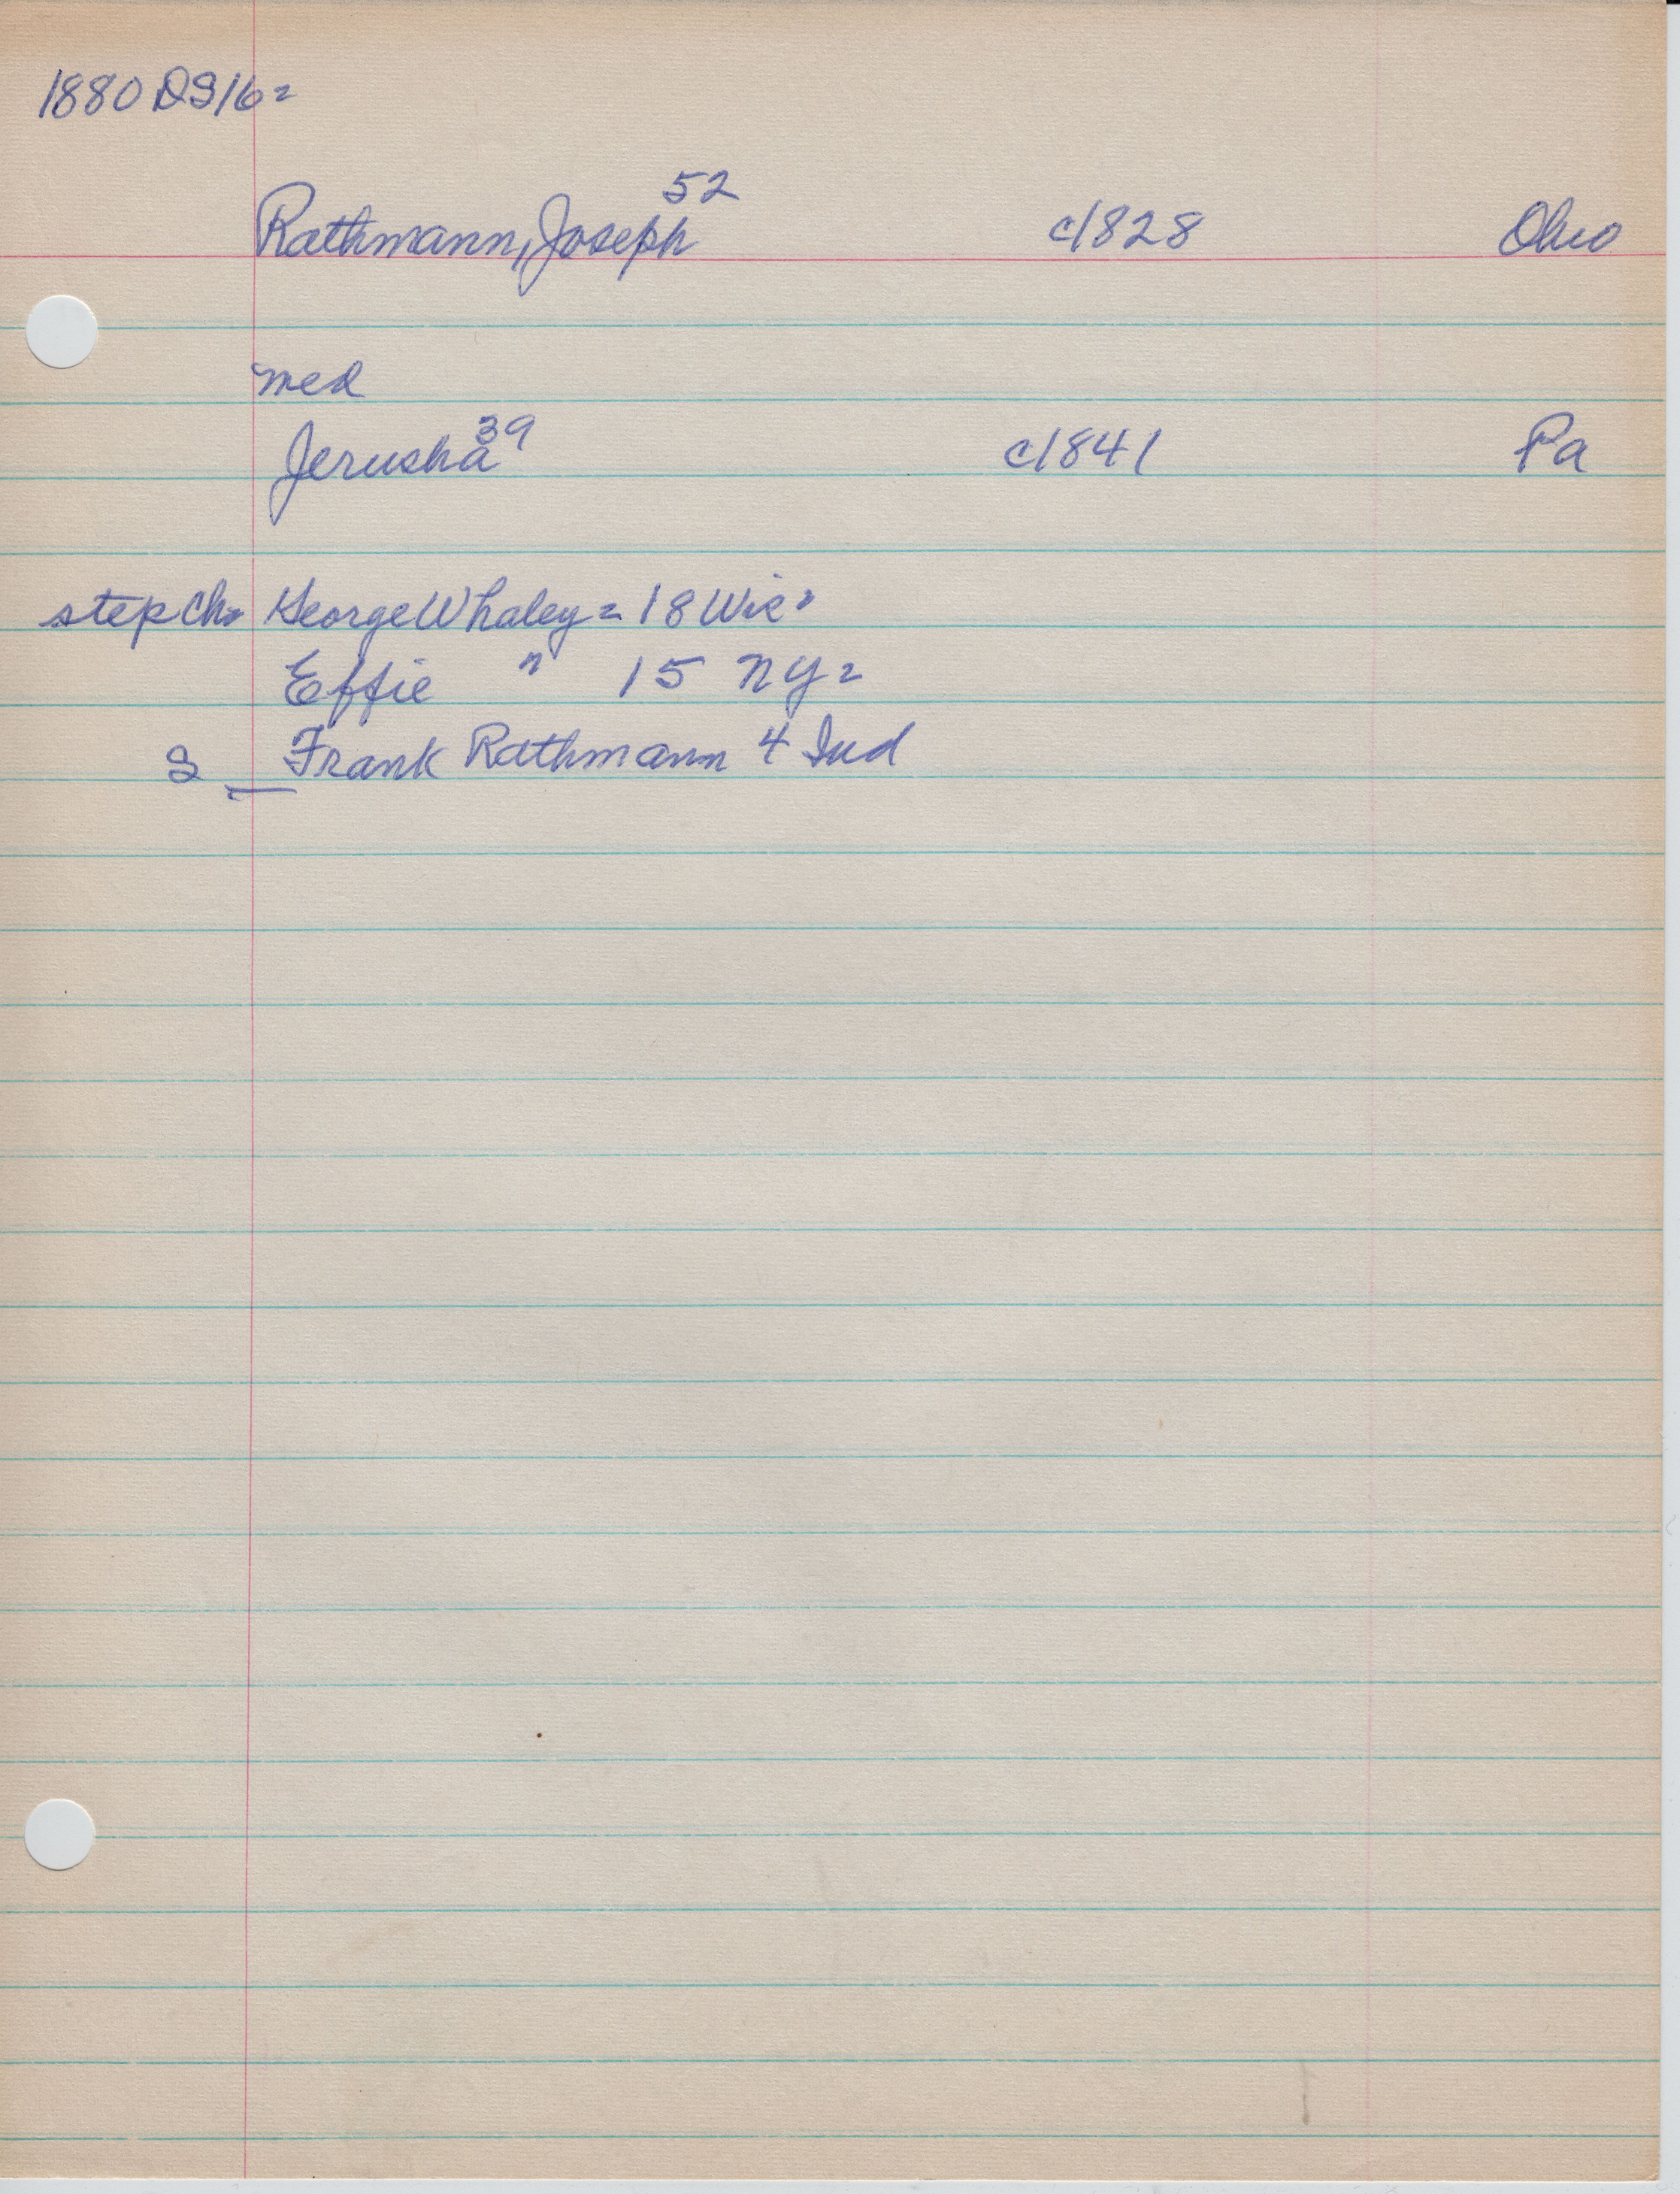 1880 DS16=
Rathmann, Joseph 52 c1828 Ohio
med
Jerusha 39 c1841 Pa
step ch= George Whaley = 18 Wis=
Effie " 15 NY=
S Frank Rathmann 4 Ind